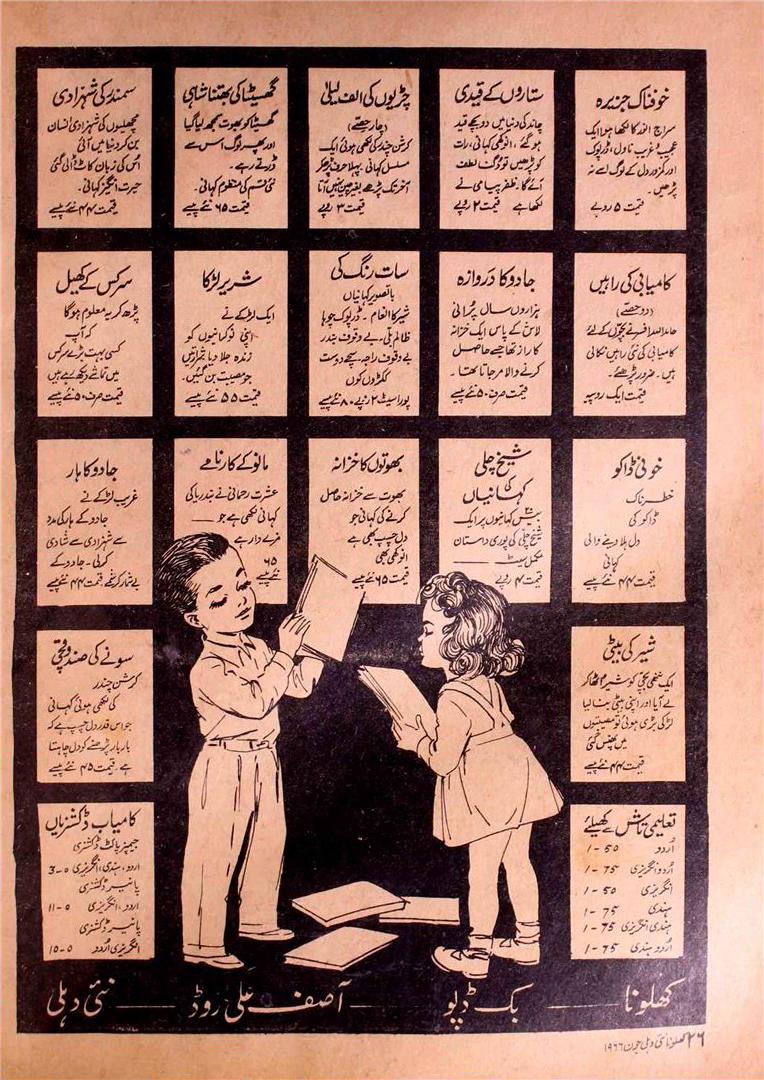 خوفناک جزیرہ
سراج انور کا لکھا ہوا ایک
عجیب و غریب ناول، ڈرپوک
اور کمزور دل کے لوگ اسے نہ
پڑھیں۔
قیمت ۵ روپے
ستاروں کے قیدی
چاند کی دنیا میں دو بچے قید
ہو گئے، انوکھی کہانی، رات
کو پڑھیں تو لطف
آئے گا۔ ظفر پیامی نے
لکھا ہے قیمت ۲ روپے
چڑیوں کی الف لیلیٰ
(چار حصّے)
کرشن چندر کی لکھی ہوئی ایک
مسلسل کہانی۔ پہلا حرف پڑھ کر
آخر تک پڑھے بغیر چین نہیں آتا
قیمت ۳ روپے
گھسیٹا کی بھتنا شاہی
گھسیٹا کو بھوت سمجھ لیا گیا
اور پھر لوگ اس سے
ڈرتے رہے۔
نئی قسم کی منظوم کہانی۔
قیمت ۶۵ نئے پیسے
سمندر کی شہزادی
مچھلیوں کی شہزادی انسان
بن کر دنیا میں آئی
اُس کی زبان کاٹ ڈالی گئی
حیرت انگیز کہانی۔
قیمت ۴۴ نئے پیسے
کامیابی کی راہیں
(دو حصّے)
حامد اللہ افسر نے بچّوں کے لئے
کامیابی کی نئی راہیں نکالی
ہیں۔ ضرور پڑھئے۔
قیمت ایک روپیہ
جادو کا دروازہ
ہزاروں سال پُرانی
لاش کے پاس ایک خزانہ
کا راز تھا جسے حاصل
کرنے والا مر جاتا تھا۔
قیمت صرف ۵۰ نئے پیسے
سات رنگ کی
باتصویر کہانیاں
شیر کا انعام۔ ڈرپوک چوہا
ظالم بلّی۔ بے وقوف بندر
بے وقوف راجہ۔ سچے دوست
ککڑوں کوں
پورا سیٹ ۲ روپے ۸۰ نئے پیسے
شریر لڑکا
ایک لڑکے نے
اپنی نوکرانیوں کو
زندہ جلا دیا شرارتیں
جو مصیبت بن گئیں۔
قیمت ۵۵ نئے پیسے
سرکس کے کھیل
پڑھ کر یہ معلوم ہوگا
کہ آپ
کسی بہت بڑے سرکس
میں تماشے دیکھ رہے ہیں
قیمت صرف ۵۰ نئے پیسے
خونی ڈاکو
خطرناک
ڈاکو کی
دل ہلا دینے والی
کہانی
قیمت ۴۴ نئے پیسے
شیخ چلی
کی
کہانیاں
بیس کہانیوں پر ایک
شیخ چلی کی پوری داستان
مکمل سیٹ
قیمت ۴ روپے
بھوتوں کا خزانہ
بھوت سے خزانہ حاصل
کرنے کی کہانی جو
دل چسپ بھی ہے
انوکھی بھی
قیمت ۶۵ نئے پیسے
مانو کے کارنامے
عشرت رحمانی نے بندریا کی
کہانی لکھی ہے جو
مزے دار ہے
۶۵
نئے پیسے
جادو کا ہار
غریب لڑکے نے
جادو کے ہار کی مدد
سے شہزادی سے شادی
کر لی۔ جادو کے
بے شمار کرشمے۔ قیمت ۴۴ نئے پیسے
شیر کی بیٹی
ایک ننھی بچّی کو شیر اٹھا کر
لے آیا اور اپنی بیٹی بنا لیا
لڑکی بڑی ہوئی تو مصیبتوں
میں پھنس گئی
قیمت ۴۴ نئے پیسے
سونے کی صندوقچی
کرشن چندر
کی لکھی ہوئی کہانی
جو اس قدر دل چسپ ہے کہ
بار بار پڑھنے کو دل چاہتا
ہے۔ قیمت ۴۵ نئے پیسے
تعلیمی تاش سے کھیلئے
اُردو 1-50
اُردو انگریزی 1-75
انگریزی 1-50
ہندی 1-75
ہندی انگریزی 1-75
اردو ہندی 1-75
کامیاب ڈکشنریاں
جیمز پاکٹ ڈکشنری
اردو، ہندی، انگریزی 3-0
پانیر ڈکشنری
اردو، انگریزی 11-0
پانیر ڈکشنری
انگریزی اُردو 15-0
کھلونا — بک ڈپو — آصف علی روڈ — نئی دہلی
۲۶ کھلونا نئی دہلی جون ۱۹۶۶